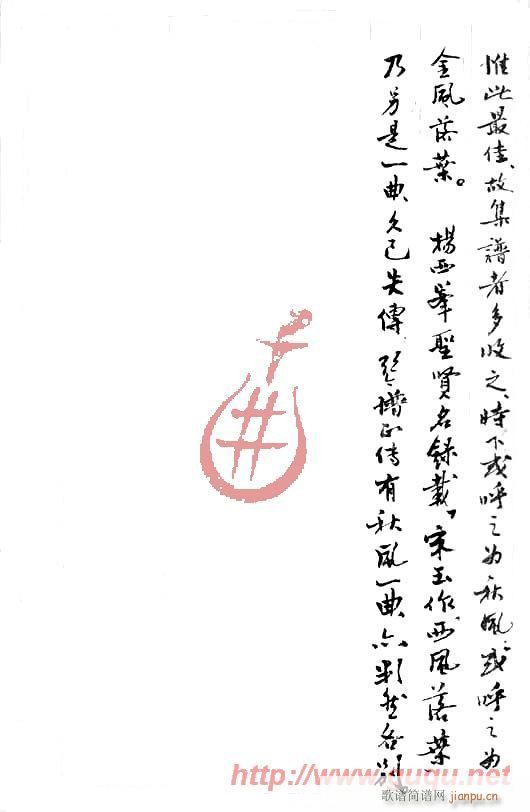 惟此最佳、故集譜者多收之、時下或呼之为秋風、或呼之为
金風落葉。 楊西峯聖賢名錄載，宋玉作西風落葉
乃另是一曲、久已失傳 譜正傳有秋風一曲、亦判然各别
http://www.guqu.net
歌谱简谱网
jianpu.cn